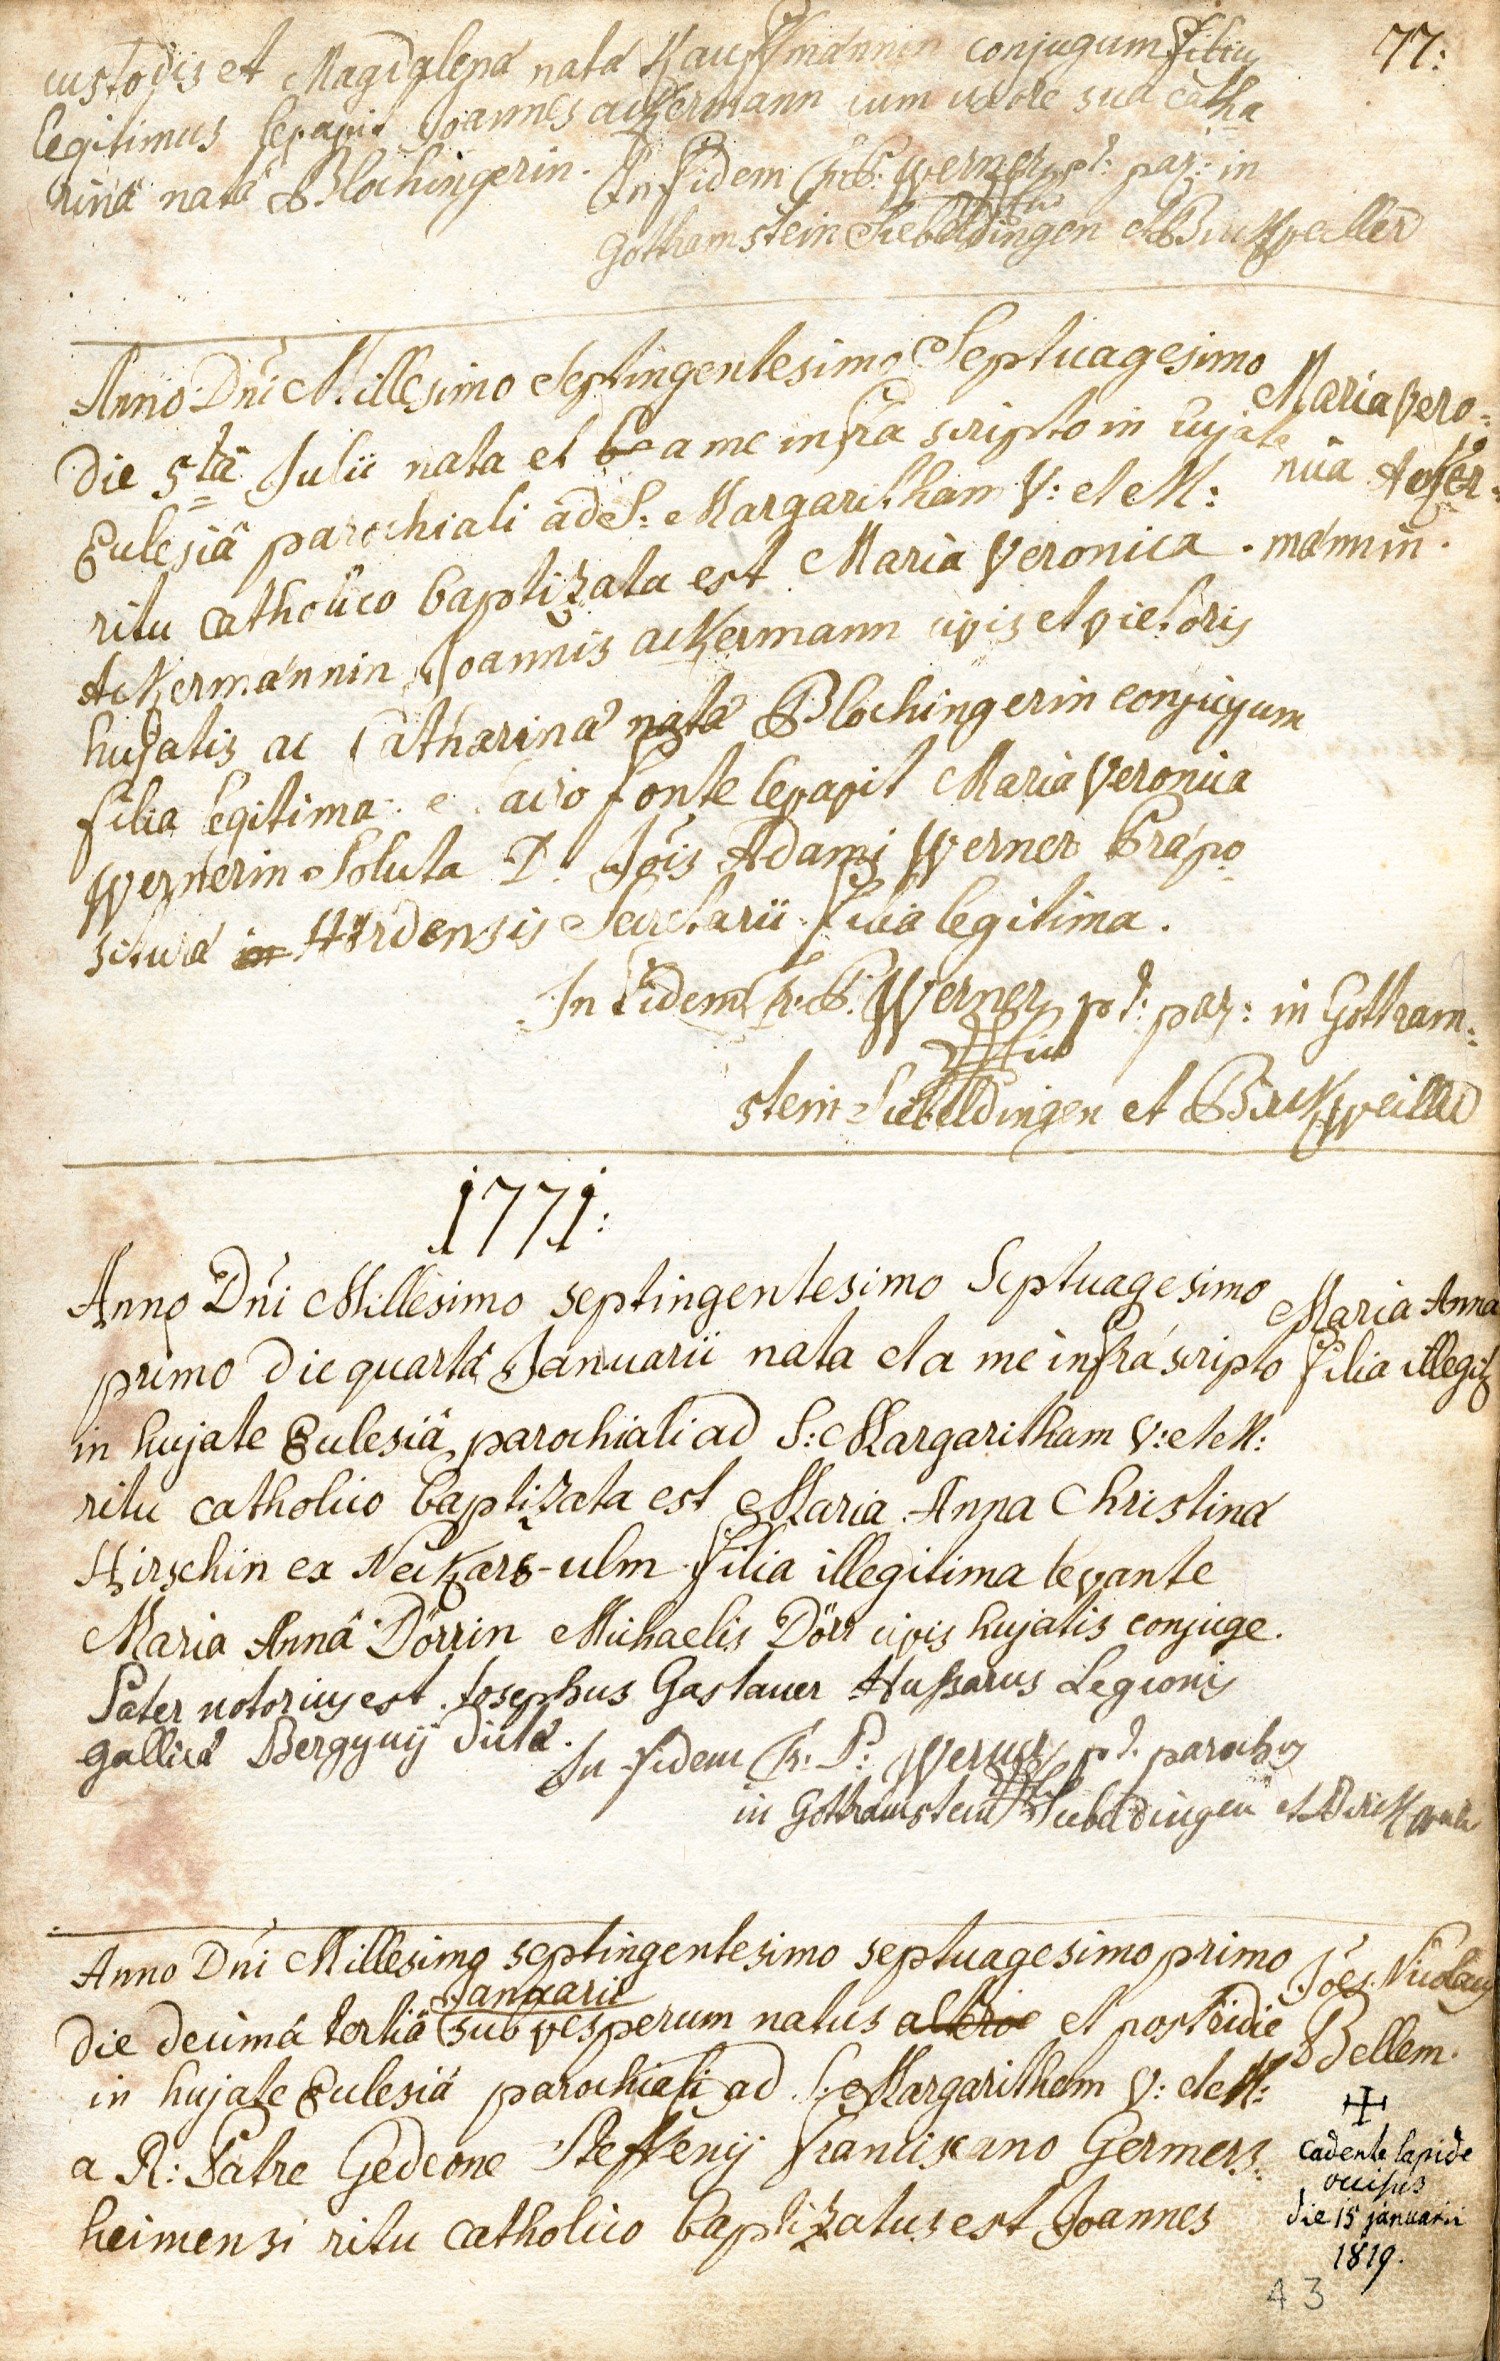 77:
custodis et Magdalena nata Kauffmännin conjugum filius
legitimus levavit Joannes ackermann cum uxore sua Catha
rinâ natâ Blochingerin. In fidem Fr: P: Werner pt: par: in
mppria
Gothramstein Siebeldingen et Birckweiller
Anno Dñi Millesimo Septingentesimo Septuagesimo
Die 5tâ Julii nata et a me infra scripto in hujate
Ecclesiâ parochiali ad S: Margaritham V: et M:
ritu catholico baptizata est Maria Veronica
Ackermännin Joannis ackermann civis et vietoris
hujatis ac Catharinâ natâ Blochingerin conjugum
filia legitima e sacro fonte levavit Maria Veronica
Wernerin Soluta D: Jois Adami Werner Præpo
situræ Hördensis Secretarii filia legitima.
Maria Vero=
nica Acker=
männin.
In Fidem Fr: P: Werner pt: par: in Gottram=
mppria
stein Siebeldingen et Birckweiller
1771:
Anno Dñi Millesimo septingentesimo Septuagesimo
primo die quartâ Januarii nata et a me infrá scripto
in hujate Ecclesiâ parochiali ad S: Margaritham V: et M:
ritu catholico baptizata est Maria Anna Christina
Hirschin ex Neckars-ulm filia illegitima levante
Maria Annâ Dörrin Michaelis Dörr civis hujatis conjuge.
Pater notorius est Josephus Gastauer Hussarus Legionis
Gallicæ Bergynij dictæ.
Maria Anna
filia illegit
In fidem Fr: P: Werner pt: parochus
in Gothramstein Siebeldingen et Birckweiller
Anno Dñi Millesimo septingentesimo septuagesimo primo
Januarii
die decimâ tertiâ sub vesperum natus et postridie
in hujate Ecclesiâ parochiali ad S: Margarithem V: et M:
a R: Patre Gedeone Steffenij Franciscano Germers=
heimensi ritu catholico baptizatus est Joannes
Joes Nicolaus
Bellem.
cadente lapide
occisus
die 15 januarii
1819.
43